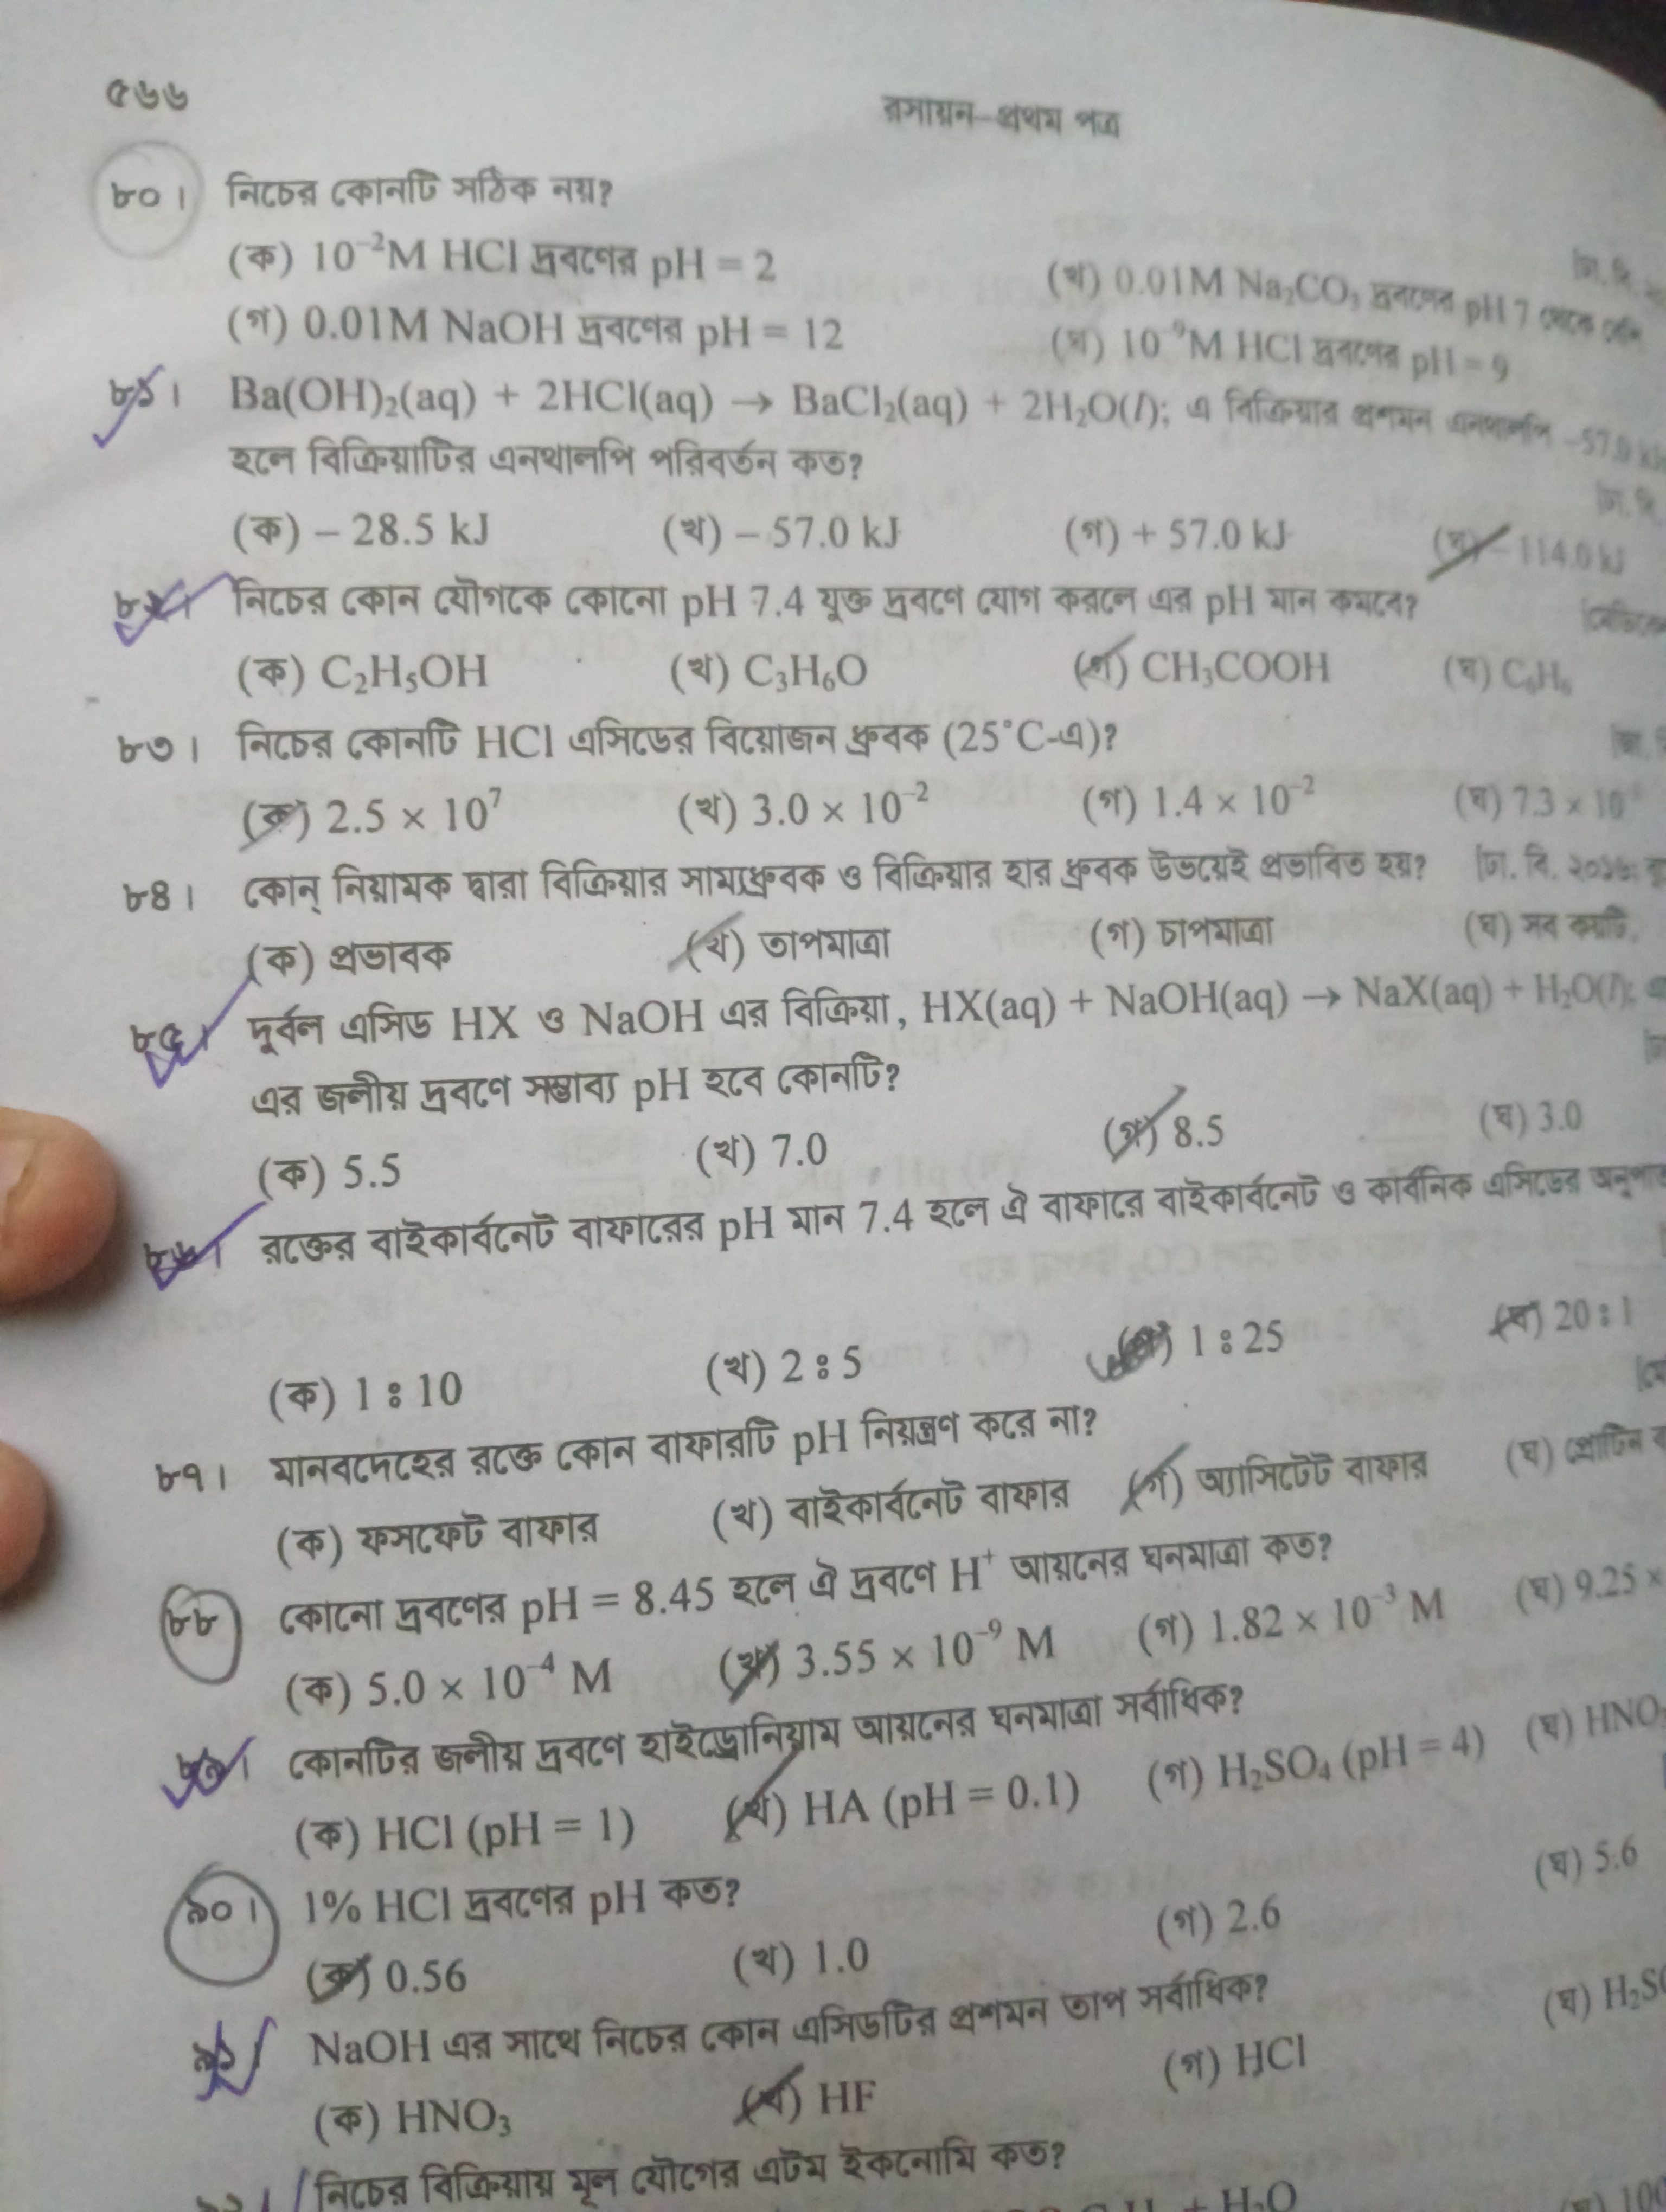 ৫৬৬
রসায়ন–প্রথম পত্র
৮০। নিচের কোনটি সঠিক নয়?
(ক) 10⁻²M HCl দ্রবণের pH = 2 (খ) 0.01M Na₂CO₃ দ্রবণের pH 7 থেকে বেশি
(গ) 0.01M NaOH দ্রবণের pH = 12 (ঘ) 10⁻⁹M HCl দ্রবণের pH = 9
৮১। Ba(OH)₂(aq) + 2HCl(aq) → BaCl₂(aq) + 2H₂O(l); এ বিক্রিয়ার প্রশমন এনথালপি –57.0 kJ
হলে বিক্রিয়াটির এনথালপি পরিবর্তন কত?
(ক) – 28.5 kJ (খ) – 57.0 kJ (গ) + 57.0 kJ (ঘ) – 114.0 kJ
৮২। নিচের কোন যৌগকে কোনো pH 7.4 যুক্ত দ্রবণে যোগ করলে এর pH মান কমবে?
(ক) C₂H₅OH (খ) C₃H₆O (গ) CH₃COOH (ঘ) C₆H₆
৮৩। নিচের কোনটি HCl এসিডের বিয়োজন ধ্রুবক (25°C-এ)?
(ক) 2.5 × 10⁷ (খ) 3.0 × 10⁻² (গ) 1.4 × 10⁻² (ঘ) 7.3 × 10
৮৪। কোন্ নিয়ামক দ্বারা বিক্রিয়ার সাম্যধ্রুবক ও বিক্রিয়ার হার ধ্রুবক উভয়েই প্রভাবিত হয়? [ঢা. বি. ২০১৬;
(ক) প্রভাবক (খ) তাপমাত্রা (গ) চাপমাত্রা (ঘ) সব কয়টি
৮৫। দুর্বল এসিড HX ও NaOH এর বিক্রিয়া, HX(aq) + NaOH(aq) → NaX(aq) + H₂O(l);
এর জলীয় দ্রবণে সম্ভাব্য pH হবে কোনটি?
(ক) 5.5 (খ) 7.0 (গ) 8.5 (ঘ) 3.0
৮৬। রক্তের বাইকার্বনেট বাফারের pH মান 7.4 হলে ঐ বাফারে বাইকার্বনেট ও কার্বনিক এসিডের অনুপাত
(ক) 1 : 10 (খ) 2 : 5 (গ) 1 : 25 (ঘ) 20 : 1
৮৭। মানবদেহের রক্তে কোন বাফারটি pH নিয়ন্ত্রণ করে না?
(ক) ফসফেট বাফার (খ) বাইকার্বনেট বাফার (গ) অ্যাসিটেট বাফার (ঘ) প্রোটিন
৮৮ কোনো দ্রবণের pH = 8.45 হলে ঐ দ্রবণে H⁺ আয়নের ঘনমাত্রা কত?
(ক) 5.0 × 10⁻⁴ M (খ) 3.55 × 10⁻⁹ M (গ) 1.82 × 10⁻³ M (ঘ) 9.25 ×
৮৯। কোনটির জলীয় দ্রবণে হাইড্রোনিয়াম আয়নের ঘনমাত্রা সর্বাধিক?
(ক) HCl (pH = 1) (খ) HA (pH = 0.1) (গ) H₂SO₄ (pH = 4) (ঘ) HNO
৯০। 1% HCl দ্রবণের pH কত?
(ক) 0.56 (খ) 1.0 (গ) 2.6 (ঘ) 5.6
৯১। NaOH এর সাথে নিচের কোন এসিডটির প্রশমন তাপ সর্বাধিক?
(ক) HNO₃ (খ) HF (গ) HCl (ঘ) H₂S
নিচের বিক্রিয়ায় মূল যৌগের এটম ইকনোমি কত?
+ H₂O